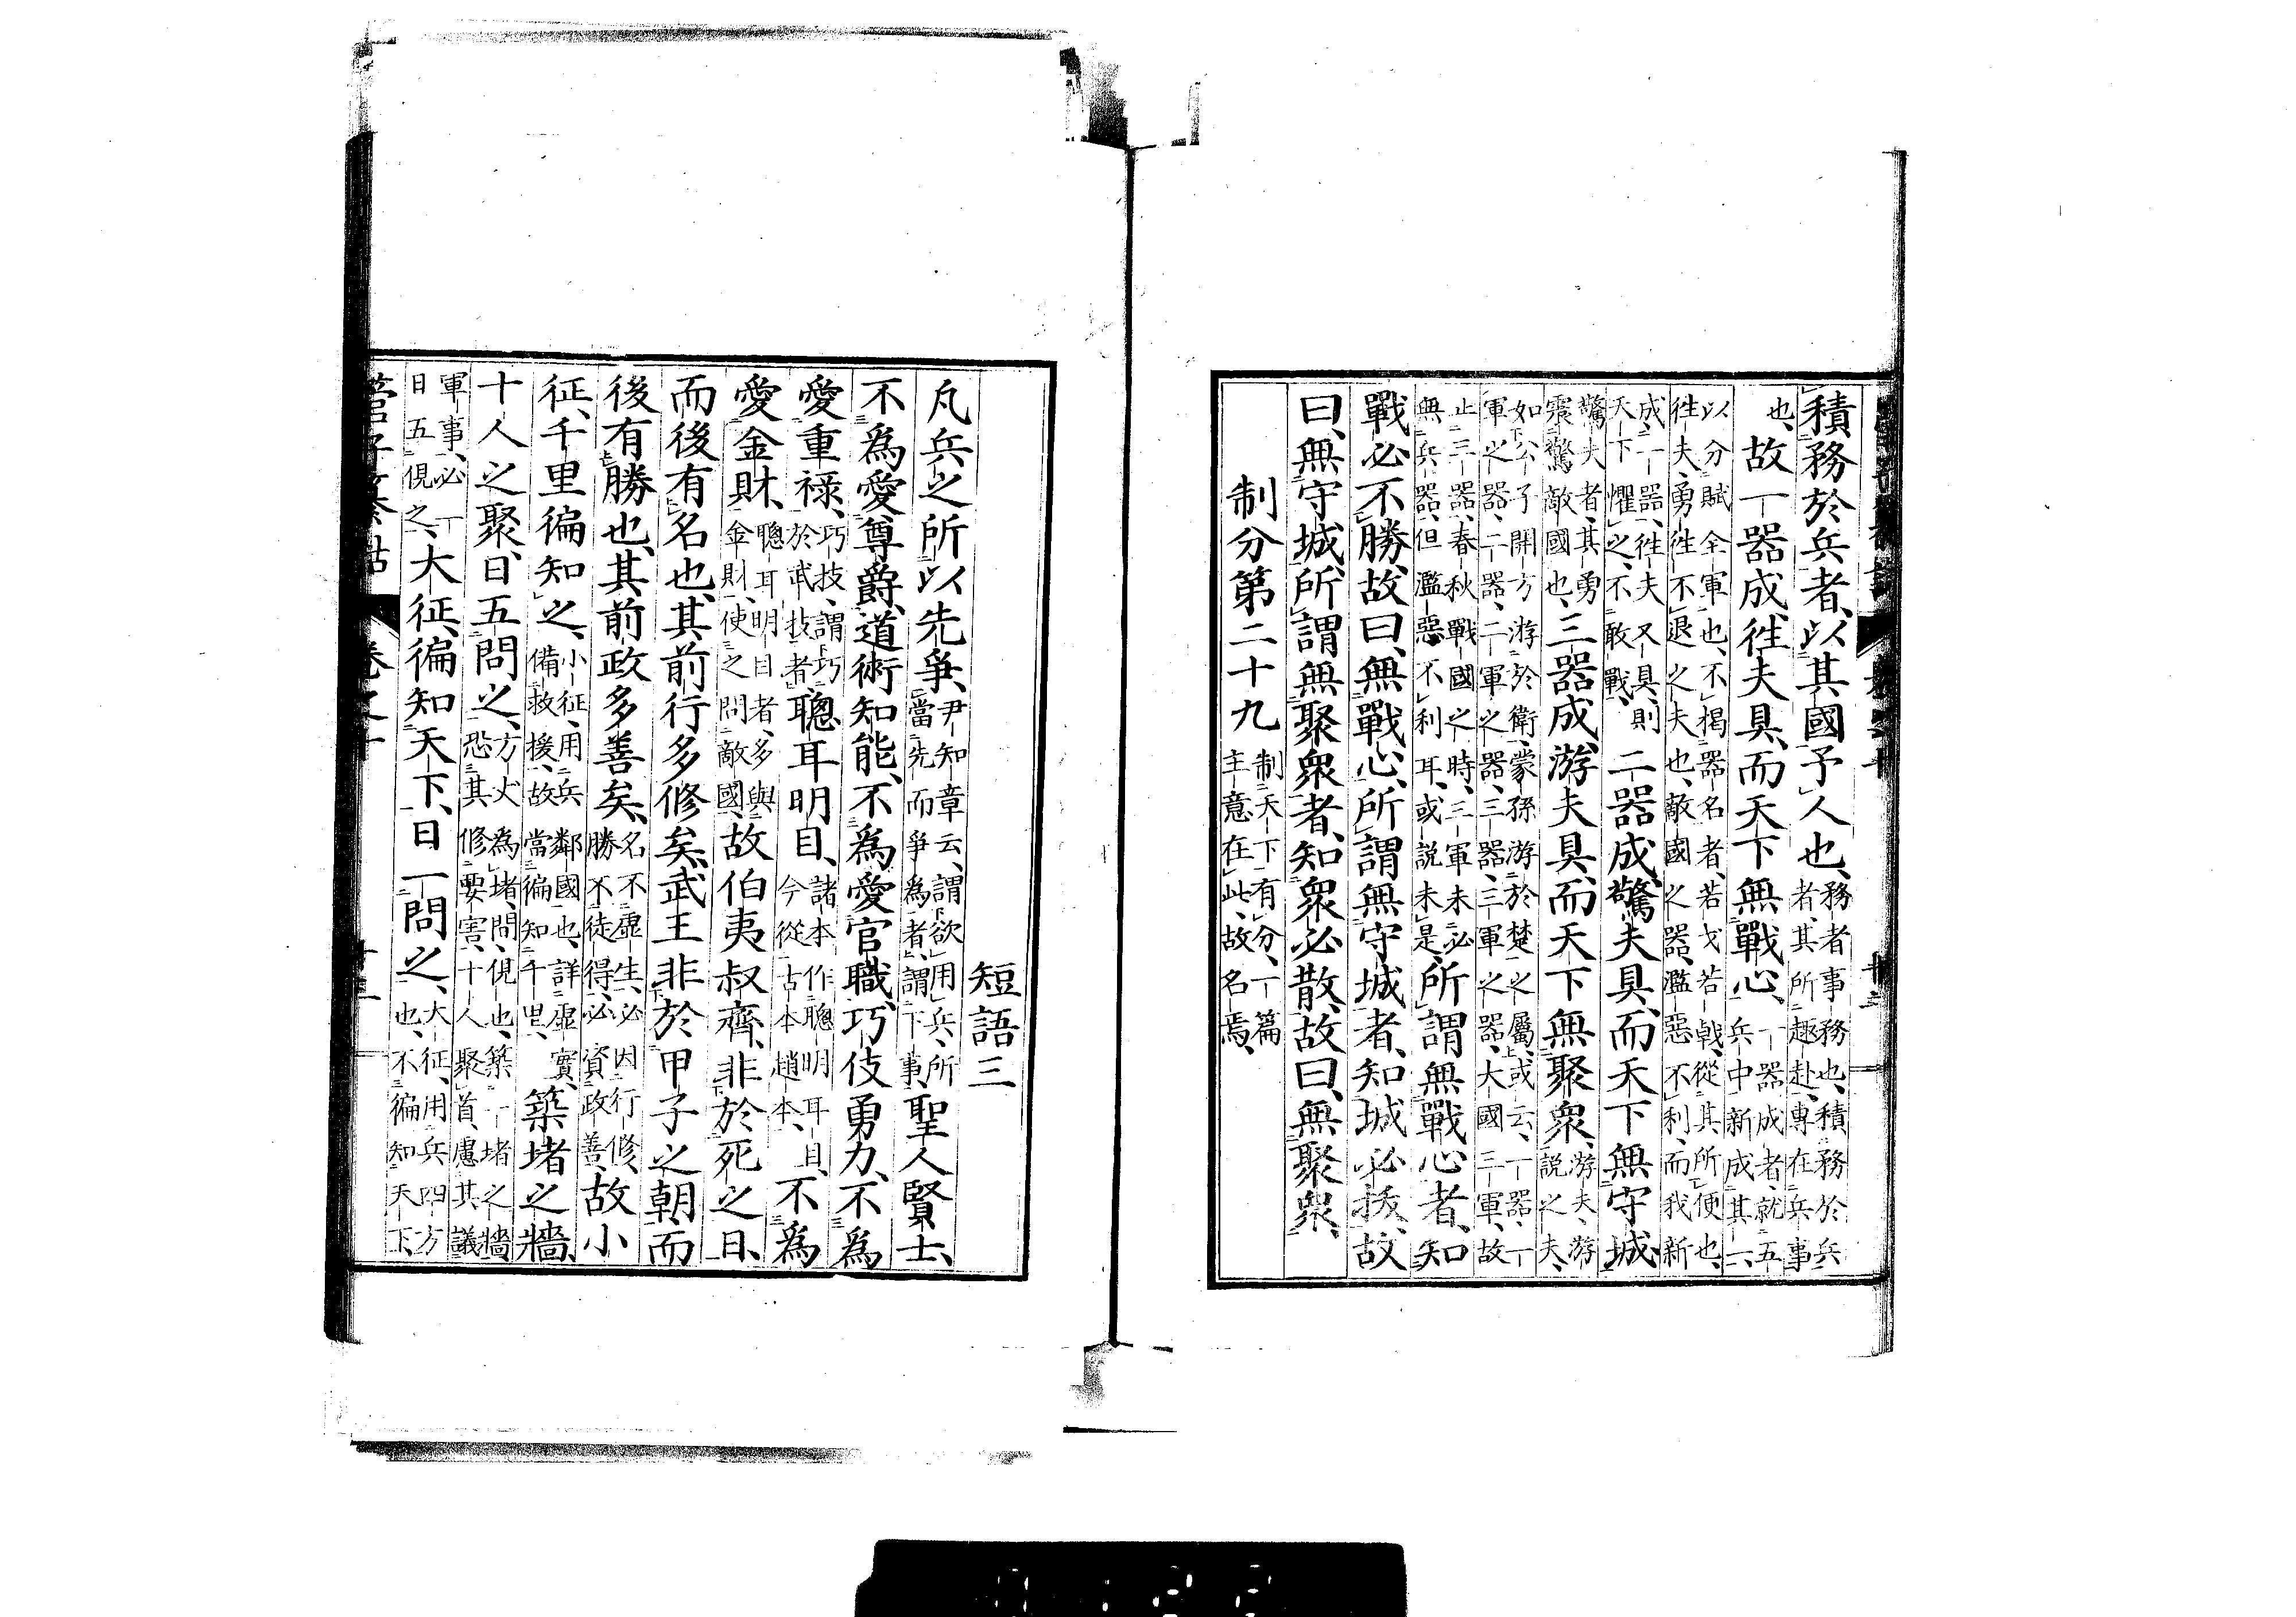 積務於兵者、以其國予人也、務者事務也、積務於兵
者、其所趣赴、專在兵事
也、故一器成、徃夫具、而天下無戰心、一器成者、就五
兵中新成其一、
以分賦全軍也、不掲器名者、若戈若戟、從其所便也、
徃夫、勇徃不退之夫也、敵國之器、濫惡不利、而我新
成一器、徃夫又具、則
天下懼之、不敢戰、二器成、驚夫具、而天下無守城、
驚夫者、其勇
震驚敵國也、三器成、游夫具、而天下無聚衆、游夫、游
說之夫、
如公子開方游於衛、蒙孫游於楚之屬、或云、一器、一
軍之器、二器、二軍之器、三器、三軍之器、大國三軍、故
止三器、春秋戰國之時、三軍未必
無兵器、但濫惡不利耳、或說未是、所謂無戰心者、知
戰必不勝、故曰、無戰心、所謂無守城者、知城必拔、故
曰、無守城、所謂無聚衆者、知衆必散、故曰、無聚衆、
制分第二十九 制天下有分、一篇
主意在此、故名焉、
短語三
凡兵之所以先爭、尹知章云、謂欲用兵、所
當先而爭爲者、謂下事、聖人賢士、
不爲愛尊爵、道術知能、不爲愛官職、巧伎勇力、不爲
愛重祿、巧技、謂巧
於武技者、聰耳明目、諸本作聰明耳目、
今從古本趙本、不爲
愛金財、聰耳明目者、多與
金財、使之問敵國、故伯夷叔齊、非於死之日、
而後有名也、其前行多修矣、武王非於甲子之朝、而
後有勝也、其前政多善矣、名不虛生、必因行修、
勝不徒得、必資政善、故小
征、千里徧知之、小征、用兵鄰國也、詳虛實、
備救援、故當徧知千里、築堵之牆、
十人之聚、日五問之、方丈爲堵、問、俔也、築一堵之牆、
恐其修要害、十人聚首、慮其議
軍事、必一
日五俔之、大征、徧知天下、日一問之、大征、用兵四方
也、不徧知天下、
管子纂詁 卷之十